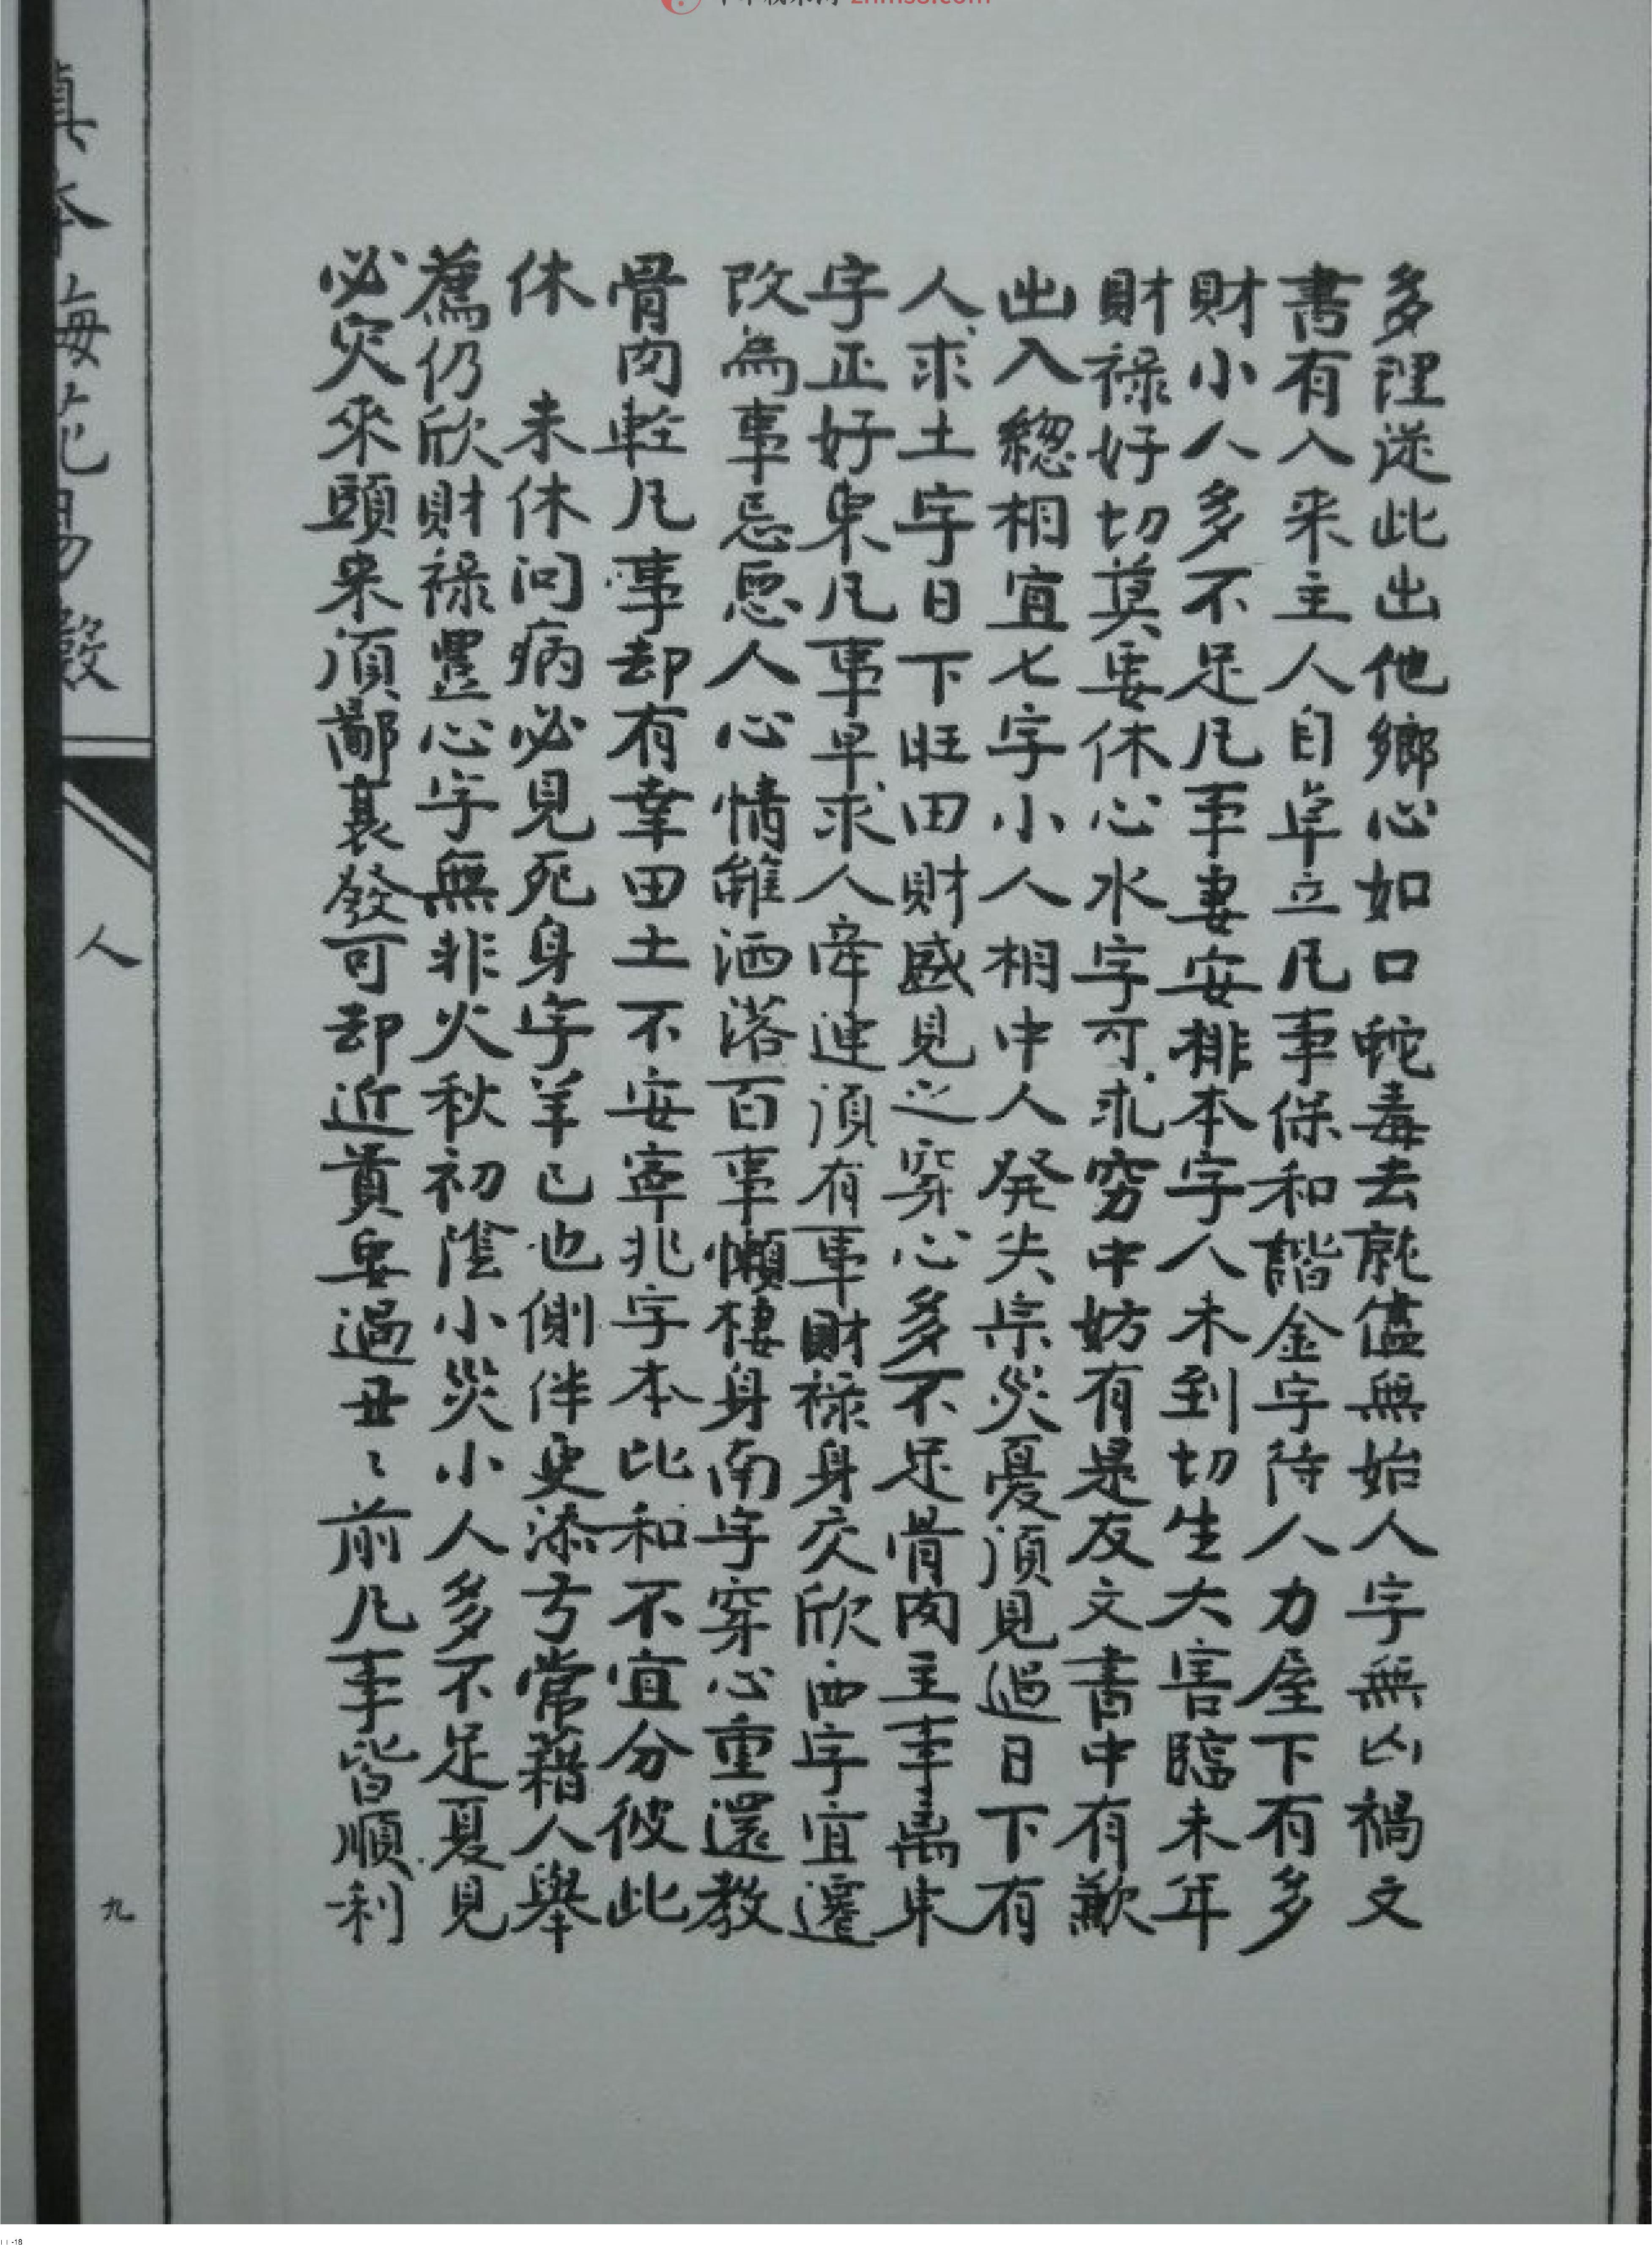 多陞送此出他鄉心如口蛇毒去就儘無始人字無凶禍文
書有入来主人自卓立凡事保和諧金字待人力屋下有多
財小人多不足凡事妻安排本字人未到切生大害臨未年
財禄好切莫要休心水字可求窮中妨有是友文書中有歉
出入總相宜七字小人相中人発尖宗災憂須見過日下有
人求土字日下旺田財盛見之穿心多不足骨肉主事禹東
字正好東凡事早求人牵連須有事財禄身交欣西字宜遷
改為事忌愿人心情雖洒落百事懶棲身南字穿心重還教
骨肉輕凡事却有幸田土不安寧北字本比和不宜分彼此
休 未休问病必見死身字羊已也側伴更添亏常藉人舉
薦仍欣財禄豐心字無非火秋初陰小災小人多不足夏見
必灾來頭来須鄙裏發可却近貴要過丑〻前凡事皆順利
真本梅花易数
人
九
znms8.com